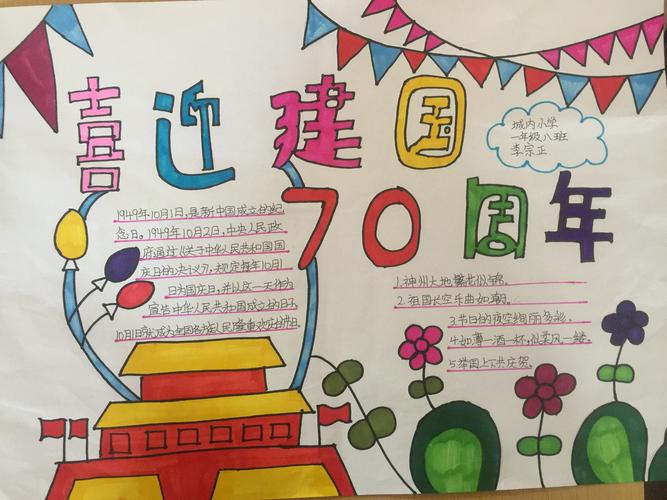 喜迎建国
70周年
城内小学
一年级八班
李宗正
1949年10月1日,是新中国成立的纪
念日。1949年10月2日,中央人民政
府通过《关于中华人民共和国国
庆日的决议》,规定每年10月1
日为国庆日,并以这一天作为
宣告中华人民共和国成立的日子。
10月1日就成为全国各族人民隆重欢庆的节日。
1.神州大地繁花似锦,
2.祖国长空乐曲如潮。
3.节日的夜空绚丽多彩。
4.如薄一酒一杯,似柔风一缕。
5.举国上下共庆贺。